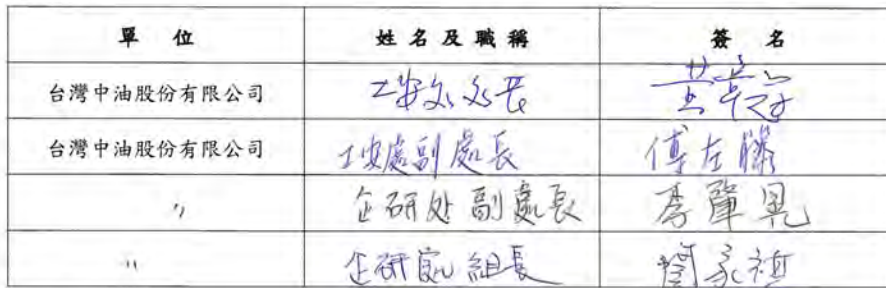 單 位 姓 名 及 職 稱 簽 名
台灣中油股份有限公司 工安处处长
台灣中油股份有限公司 工安處副處長 傅左
〃 企研处副處長 李肇
〃 企研處組長 家禎